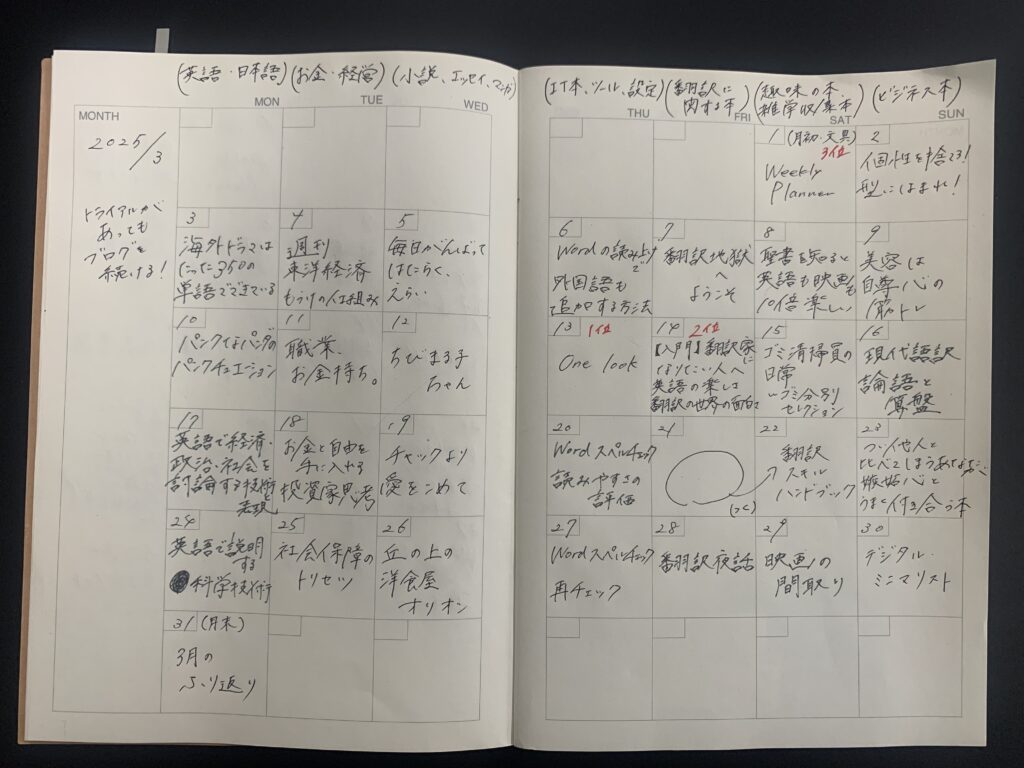 (英語・日本語)(お金・経営)(小説、エッセイ、マンガ)
(IT本、ツール、設定)(翻訳に関する本)(趣味の本、雑学収集本)(ビジネス本)
MONTH
MON
TUE
WED
THU
FRI
SAT
SUN
2025/3
トライアルが
あっても
ブログを
続ける!
1 (月初・文具)
3位
Weekly
Planner
2
個性を捨てろ!
型にはまれ!
3
海外ドラマは
たった350の
単語でできている
4
週刊
東洋経済
もうけの仕組み
5
毎日がんばって
はたらく、
えらい
6
Wordの読み上げ
外国語も
追加する方法
7
翻訳地獄
へ
ようこそ
8
聖書を知ると
英語も映画も
10倍楽しい
9
美容は
自尊心の
筋トレ
10
パンクなパンダの
パンクチュエーション
11
職業、
お金持ち。
12
ちびまる子
ちゃん
13 1位
One look
14 2位
【入門】翻訳家に
なりたい人へ
英語の楽しさ
翻訳の世界の面白さ
15
ゴミ清掃員の
日常
〜ゴミ分別
セレクション
16
現代語訳
論語と
算盤
17
英語で経済・
政治・社会を
討論する技術と
表現
18
お金と自由を
手に入れる
投資家思考
19
チャックより
愛をこめて
20
Wordスペルチェック
読みやすさの
評価
21
22
翻訳
スキル
ハンドブック
23
つい他人と
比べてしまうあなたが
嫉妬心と
うまく付き合う本
24
英語で説明
する
科学技術
25
社会保障の
トリセツ
26
丘の上の
洋食屋
オリオン
27
Wordスペルチェック
再チェック
28
翻訳夜話
29
映画の
間取り
30
デジタル・
ミニマリスト
31 (月末)
3月の
ふり返り